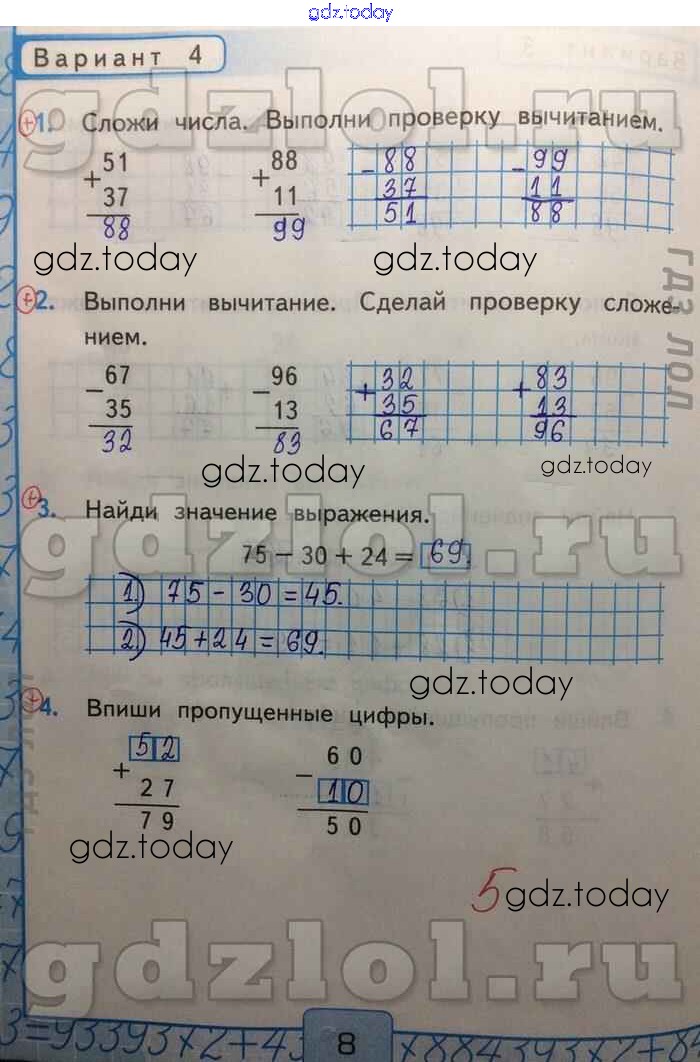 gdz.today
Вариант 4
gdzlol.ru
+1. Сложи числа. Выполни проверку вычитанием.
+ 51 + 88 - 88 - 99
37 11 37 11
88 99 51 88
gdz.today gdz.today
ГДЗ ЛОЛ
+2. Выполни вычитание. Сделай проверку сложе-
нием.
- 67 - 96 + 32 + 83
35 13 35 13
32 83 67 96
gdz.today gdz.today
+3. Найди значение выражения.
gdzlol.ru
75 - 30 + 24 = 69.
1) 75 - 30 = 45.
2) 45 + 24 = 69.
gdz.today
ГДЗ ЛОЛ
+4. Впиши пропущенные цифры.
+ 52 - 60
27 10
79 50
gdz.today
5 gdz.today
gdzlol.ru
8